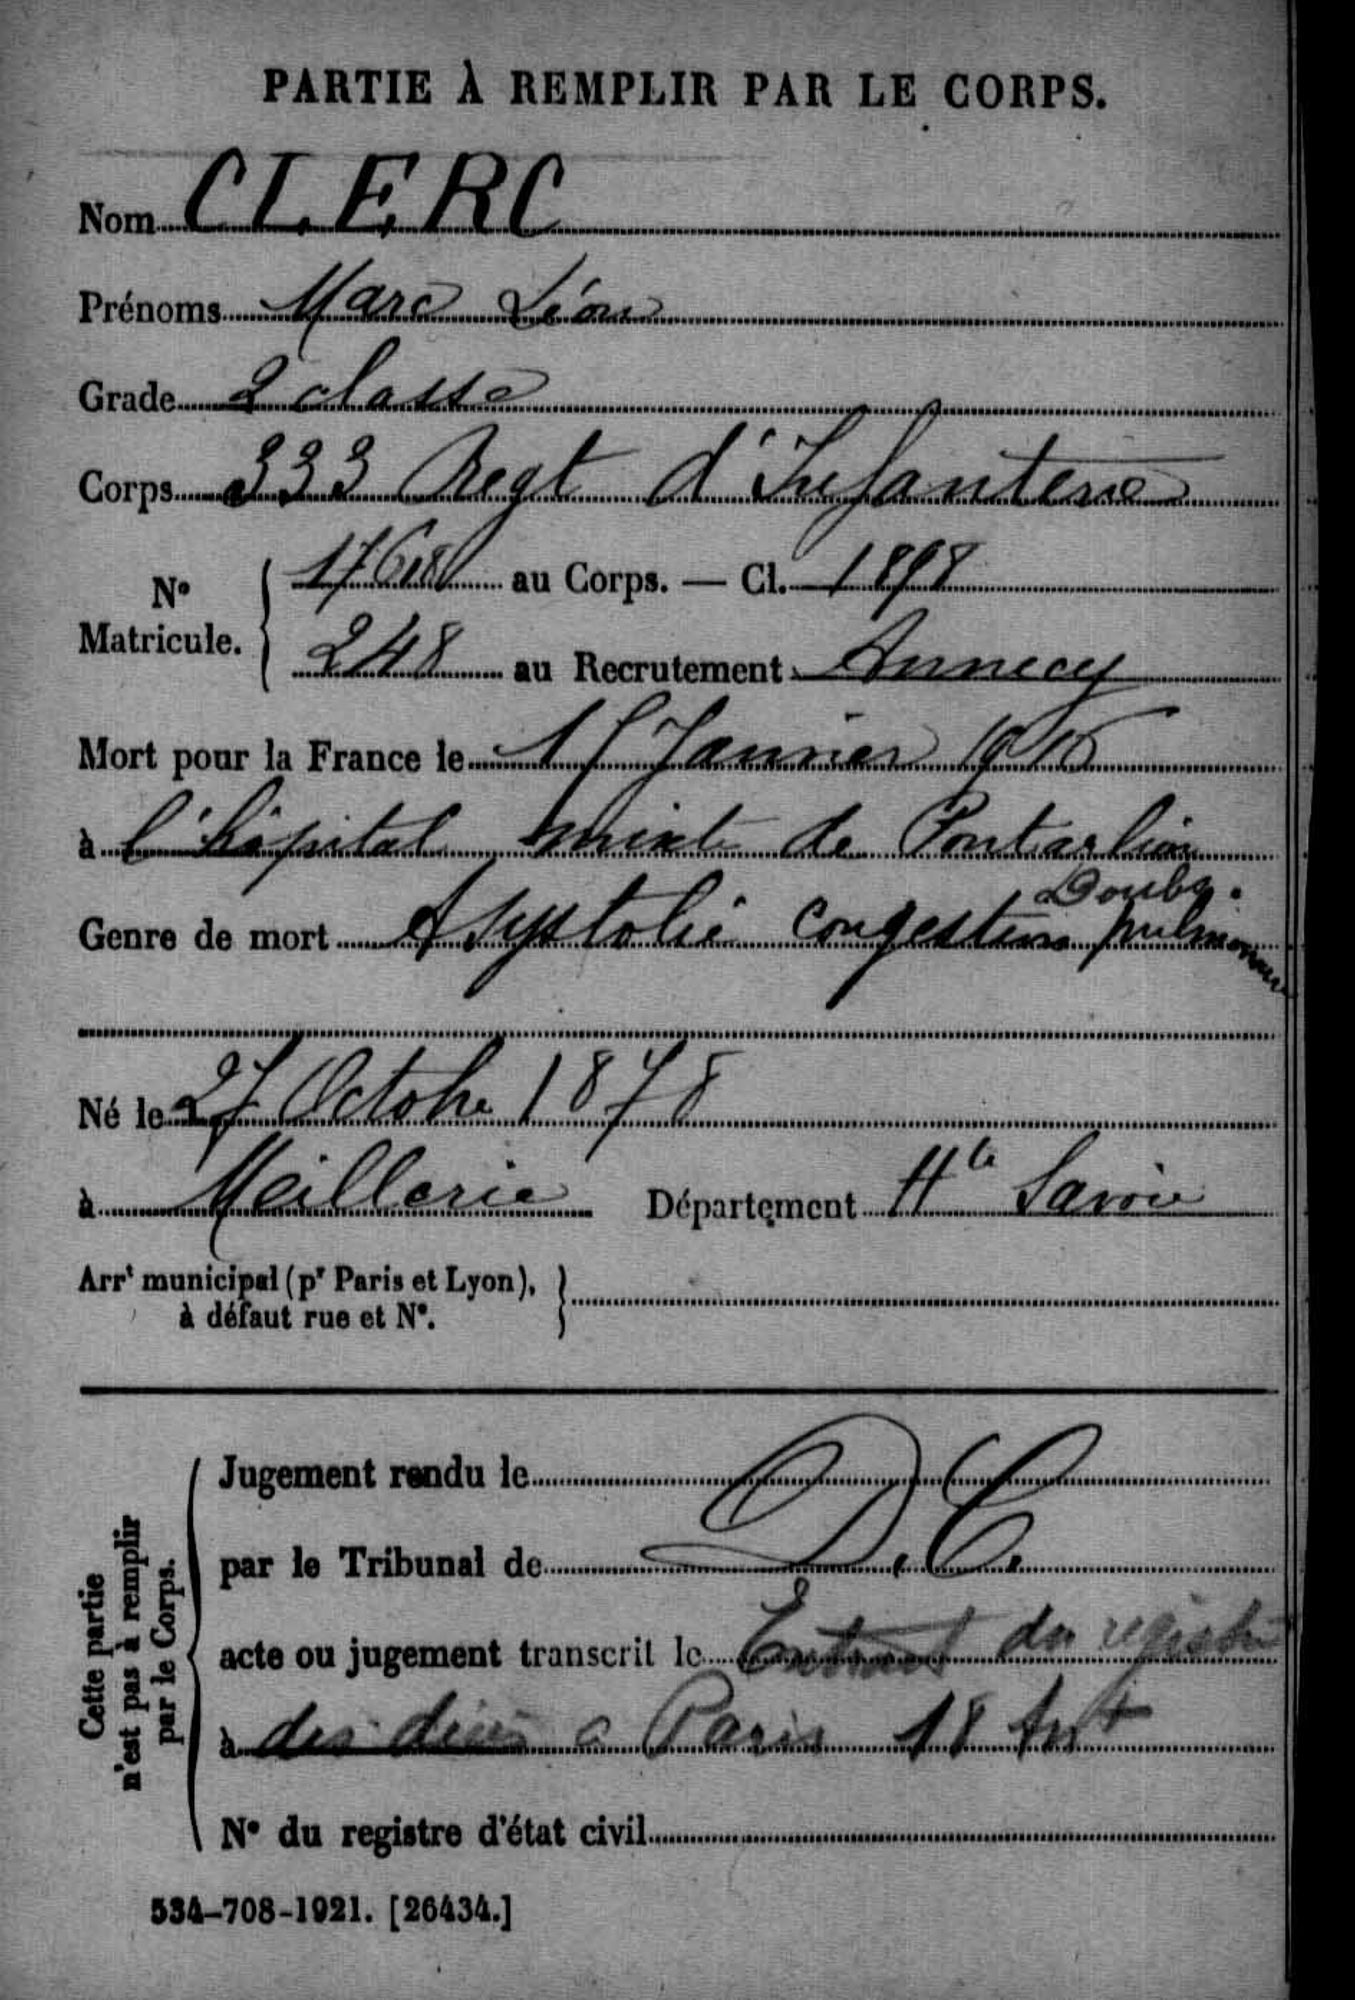 PARTIE À REMPLIR PAR LE CORPS.
Nom CLERC
Prénoms Marc Léon
Grade 2 classe
Corps 333 Regt d'Infanterie
No Matricule. 17618 au Corps. — Cl. 1898
248 au Recrutement Annecy
Mort pour la France le Janvier 1916
à l'hôpital mixte de Pontarlier
Doubs.
Genre de mort Asystolie congestion pulmonaire
Né le 27 Octobre 1878
à Meillerie Département Hte Savoie
Arrt municipal (pr Paris et Lyon),
à défaut rue et No.
Cette partie
n'est pas à remplir
par le Corps.
Jugement rendu le
par le Tribunal de D.C.
acte ou jugement transcrit le Extrait du registre
à des décès à Paris 18 Art
No du registre d'état civil
534-708-1921. [26434.]